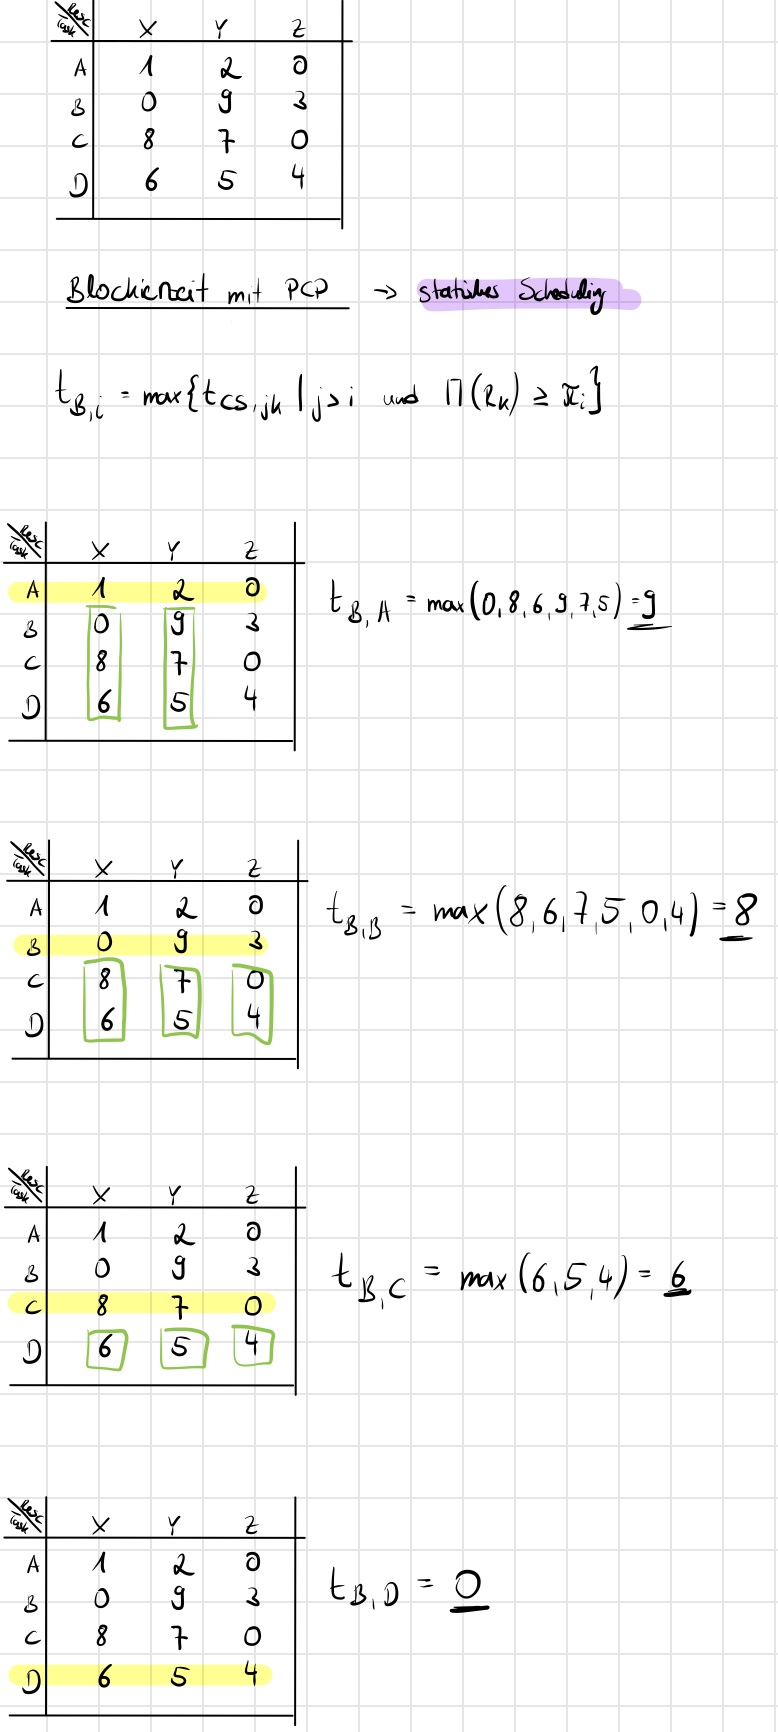 Resc
Task X Y Z
A 1 2 0
B 0 9 3
C 8 7 0
D 6 5 4
Blockierzeit mit PCP → statisches Scheduling
t_B,i = max{t_CS,jk | j>i und Π(R_K) ≥ π_i}
Resc
Task X Y Z
A 1 2 0
B 0 9 3
C 8 7 0
D 6 5 4
t_B,A = max(0,8,6,9,7,5) = 9
Resc
Task X Y Z
A 1 2 0
B 0 9 3
C 8 7 0
D 6 5 4
t_B,B = max(8,6,7,5,0,4) = 8
Resc
Task X Y Z
A 1 2 0
B 0 9 3
C 8 7 0
D 6 5 4
t_B,C = max(6,5,4) = 6
Resc
Task X Y Z
A 1 2 0
B 0 9 3
C 8 7 0
D 6 5 4
t_B,D = 0